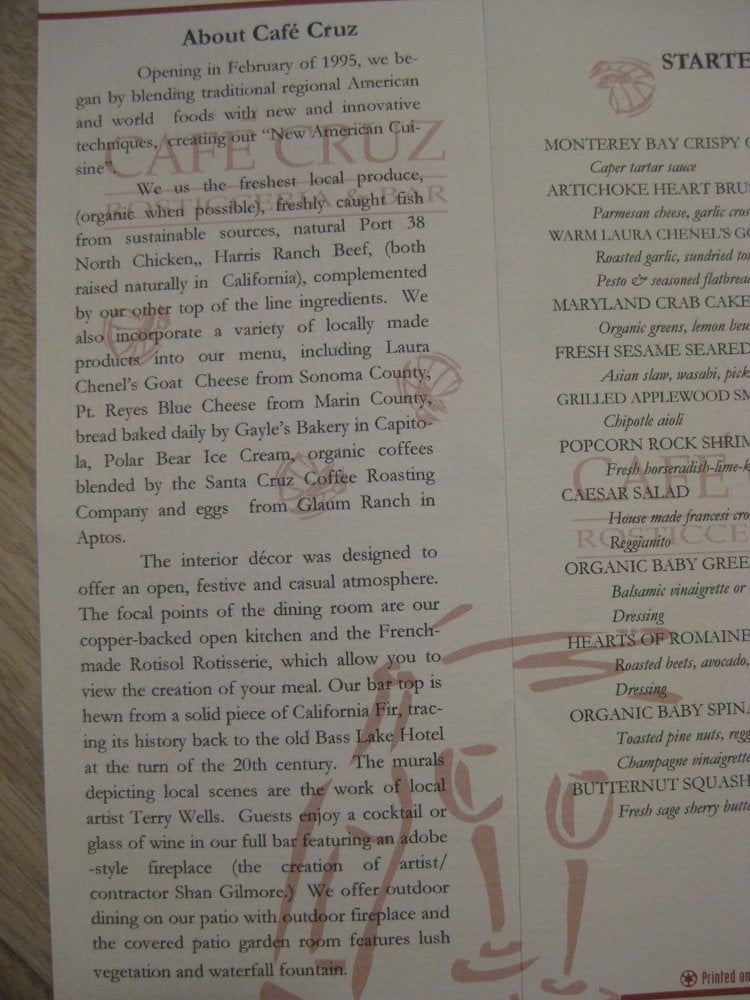 About Café Cruz
Opening in February of 1995, we be-
gan by blending traditional regional American
and world foods with new and innovative
techniques, creating our "New American Cui-
sine".
We us the freshest local produce,
(organic when possible), freshly caught fish
from sustainable sources, natural Port 38
North Chicken,, Harris Ranch Beef, (both
raised naturally in California), complemented
by our other top of the line ingredients. We
also incorporate a variety of locally made
products into our menu, including Laura
Chenel's Goat Cheese from Sonoma County,
Pt. Reyes Blue Cheese from Marin County,
bread baked daily by Gayle's Bakery in Capito-
la, Polar Bear Ice Cream, organic coffees
blended by the Santa Cruz Coffee Roasting
Company and eggs from Glaum Ranch in
Aptos.
The interior décor was designed to
offer an open, festive and casual atmosphere.
The focal points of the dining room are our
copper-backed open kitchen and the French-
made Rotisol Rotisserie, which allow you to
view the creation of your meal. Our bar top is
hewn from a solid piece of California Fir, trac-
ing its history back to the old Bass Lake Hotel
at the turn of the 20th century. The murals
depicting local scenes are the work of local
artist Terry Wells. Guests enjoy a cocktail or
glass of wine in our full bar featuring an adobe
-style fireplace (the creation of artist/
contractor Shan Gilmore.) We offer outdoor
dining on our patio with outdoor fireplace and
the covered patio garden room features lush
vegetation and waterfall fountain.
CAFE CRUZ
ROSTICCERIA & BAR
STARTE
MONTEREY BAY CRISPY
Caper tartar sauce
ARTICHOKE HEART BRU
Parmesan cheese, garlic cros
WARM LAURA CHENEL'S GO
Roasted garlic, sundried to
Pesto & seasoned flatbread
MARYLAND CRAB CAKE
Organic greens, lemon beu
FRESH SESAME SEARED
Asian slaw, wasabi, pick
GRILLED APPLEWOOD SM
Chipotle aioli
POPCORN ROCK SHRIM
Fresh horseradish-lime-k
CAESAR SALAD
House made francesi cro
Reggianito
ORGANIC BABY GREE
Balsamic vinaigrette or
Dressing
HEARTS OF ROMAINE
Roasted beets, avocado,
Dressing
ORGANIC BABY SPINA
Toasted pine nuts, regg
Champagne vinaigrette
BUTTERNUT SQUASH
Fresh sage sherry butte
CAFE
ROSTICCE
Printed on